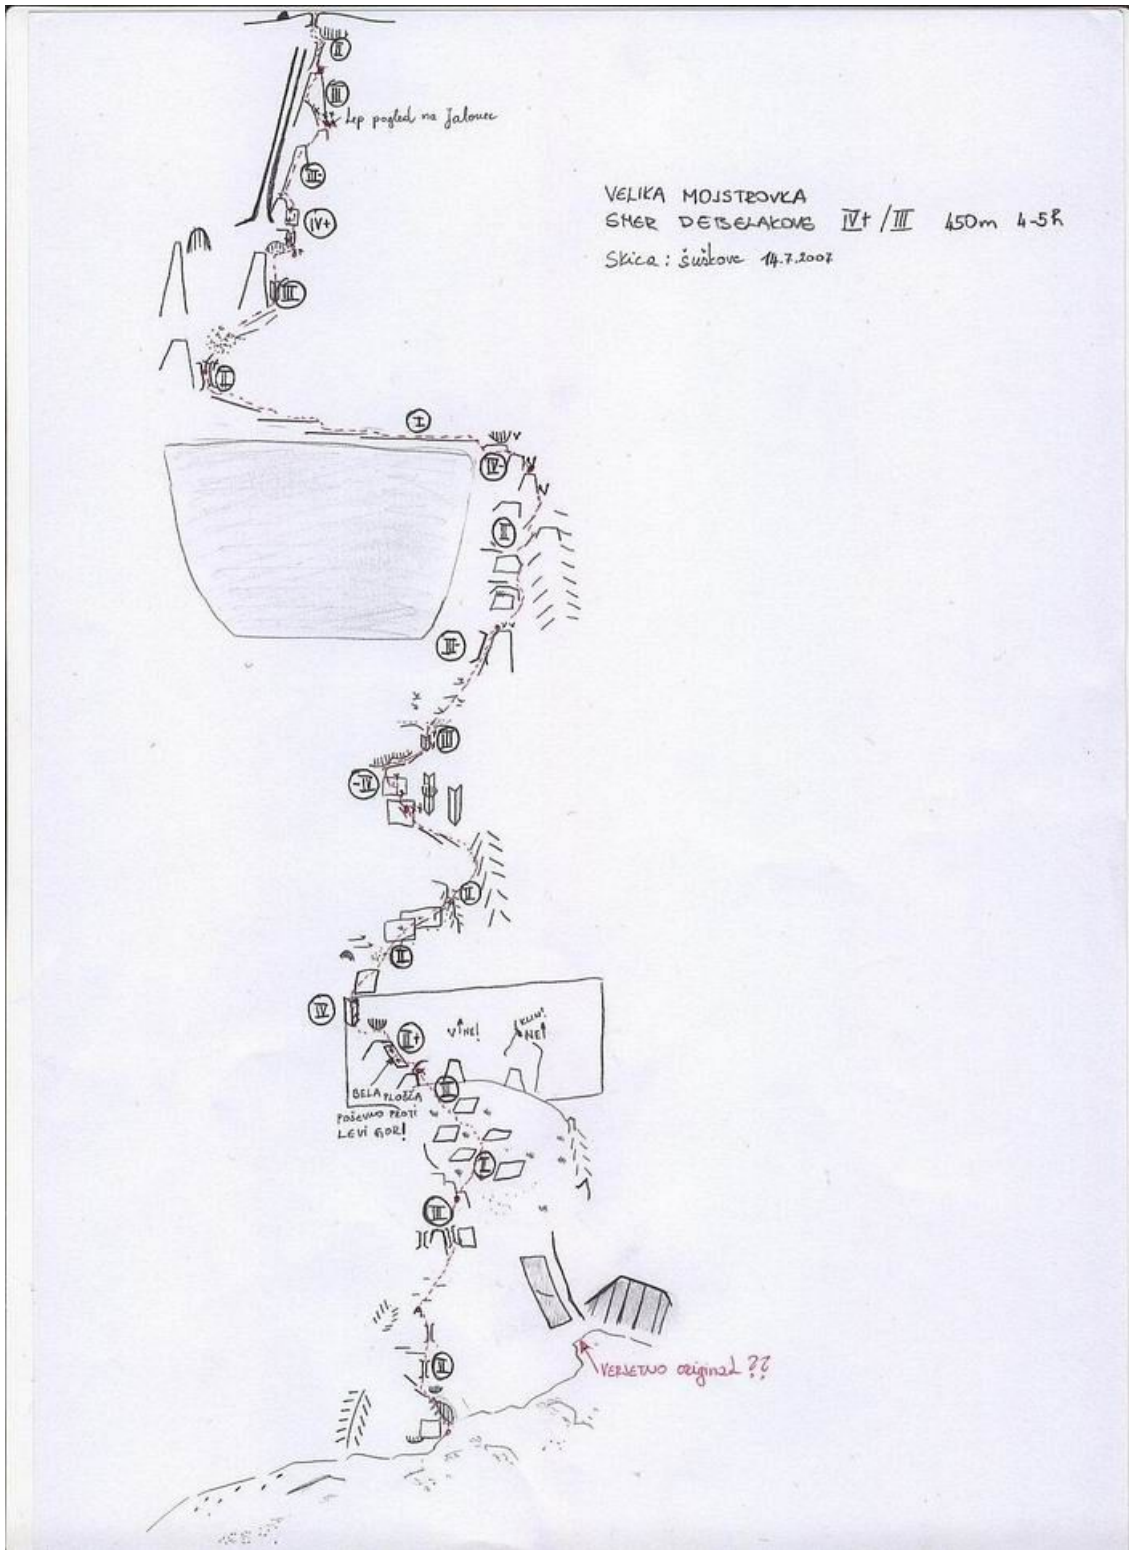 II
III
Lep pogled na Jalovec
III-
IV+
VELIKA MOJSTROVKA
SMER DEBELAKOVE IV+/III 450m 4-5h
Skica: Šuškove 14.7.2007
III
II
I
IV-
II
III-
III
-IV
II
II
IV
II+
V NE!
KLIN!
NE!
BELA PLOŠČA
III
POŠEVNO PROTI
LEVI GOR!
I
II
II
VERJETNO original ??